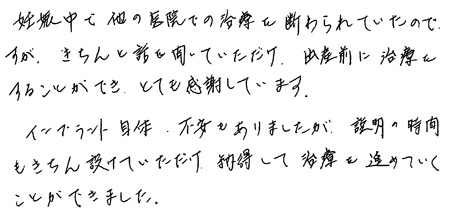 妊娠中で他の医院での治療を断わられていたので
すが、きちんと話を聞いていただけ、出産前に治療を
することができ、とても感謝しています。
インプラント自体、不安もありましたが、説明の時間
もきちんと設けていただけ、納得して治療を進めていく
ことができました。